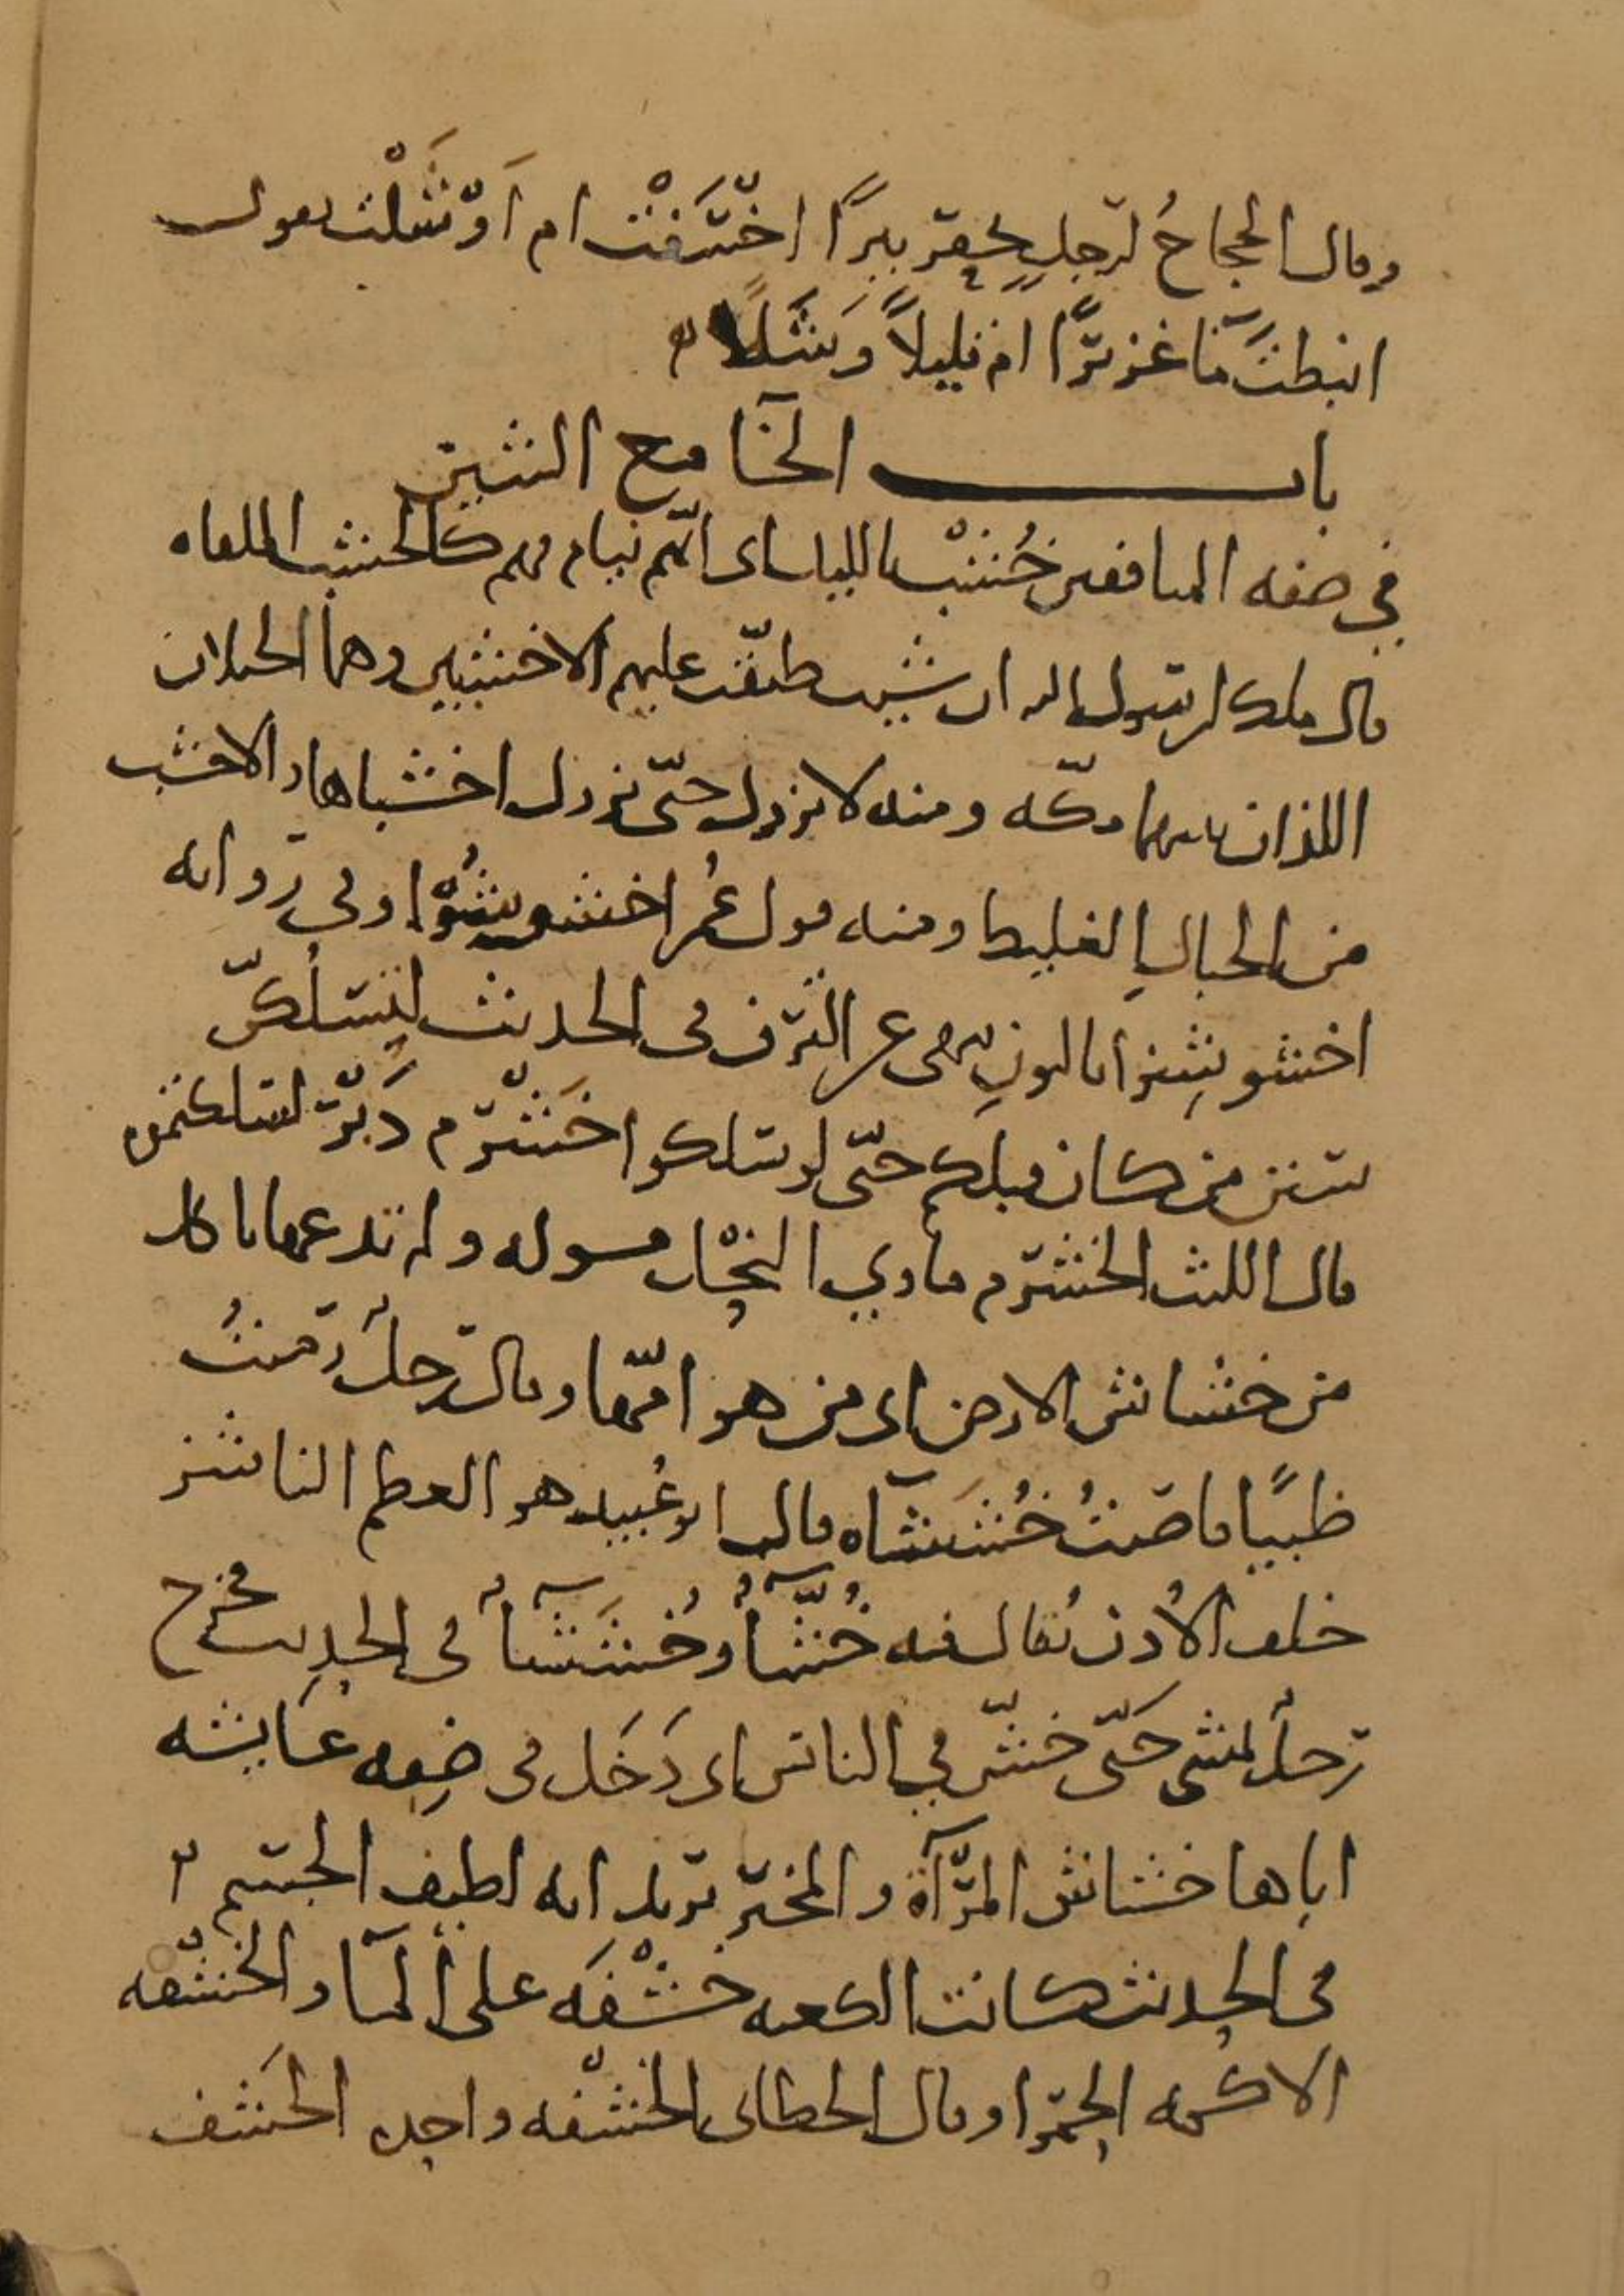 وقال الحجاجُ لرجلٍ يحفر بيرًا اخْسَفْتَ ام اَوْشَلْتَ يقول
انبطتَ مآً غزيرًا ام قليلاً وَشَلًا
باب الخآ مع الشين
في صفه المنافقين خُشْب بالليل اى انّهم نيام فهم كالخشب الملقاه
قال ملك لرسول الله ان شيت طبّقت عليهم الاخشبين وهما الجبلان
اللذان بينهما مكّه ومنه لا يزول حتّى يزول اخشباها والاخشب
من الجبالِ الغليظ ومنه قول عُمر اخشوشِنُوْا وفي روايه
اخشوشِنوا بالنونِ نهى عن الترف في الحديث لتَسلُكنّ
سنن من كان قبلكم حتّى لو سلكوا خَشْرم دَبْر لسلكتموه
قال الليث الخشرم ماوي النَّحْل في قوله ولم تدعها تاكل
من خشاش الارض اى من هوامّها وقال رجل رَميتُ
ظبيًا فاصبتُ خُشَشَآه قال ابو عُبيد هو العظم الناشز
خلف الاُذن يُقال فيه خُشّآُ وخُشَشآُ في الحديث فخرج
رجل يمشى حَتّى خشّ في الناس اى دَخَل في صِفه عَايشه
اباها خشاش المرآة والمخبر تريد انه لطيف الجسم
في الحديث كانت الكعبه خشْفَه على المآ والخشفه
الاكمه الحمرا وقال الخطابى الخشفه واحده الخَشف